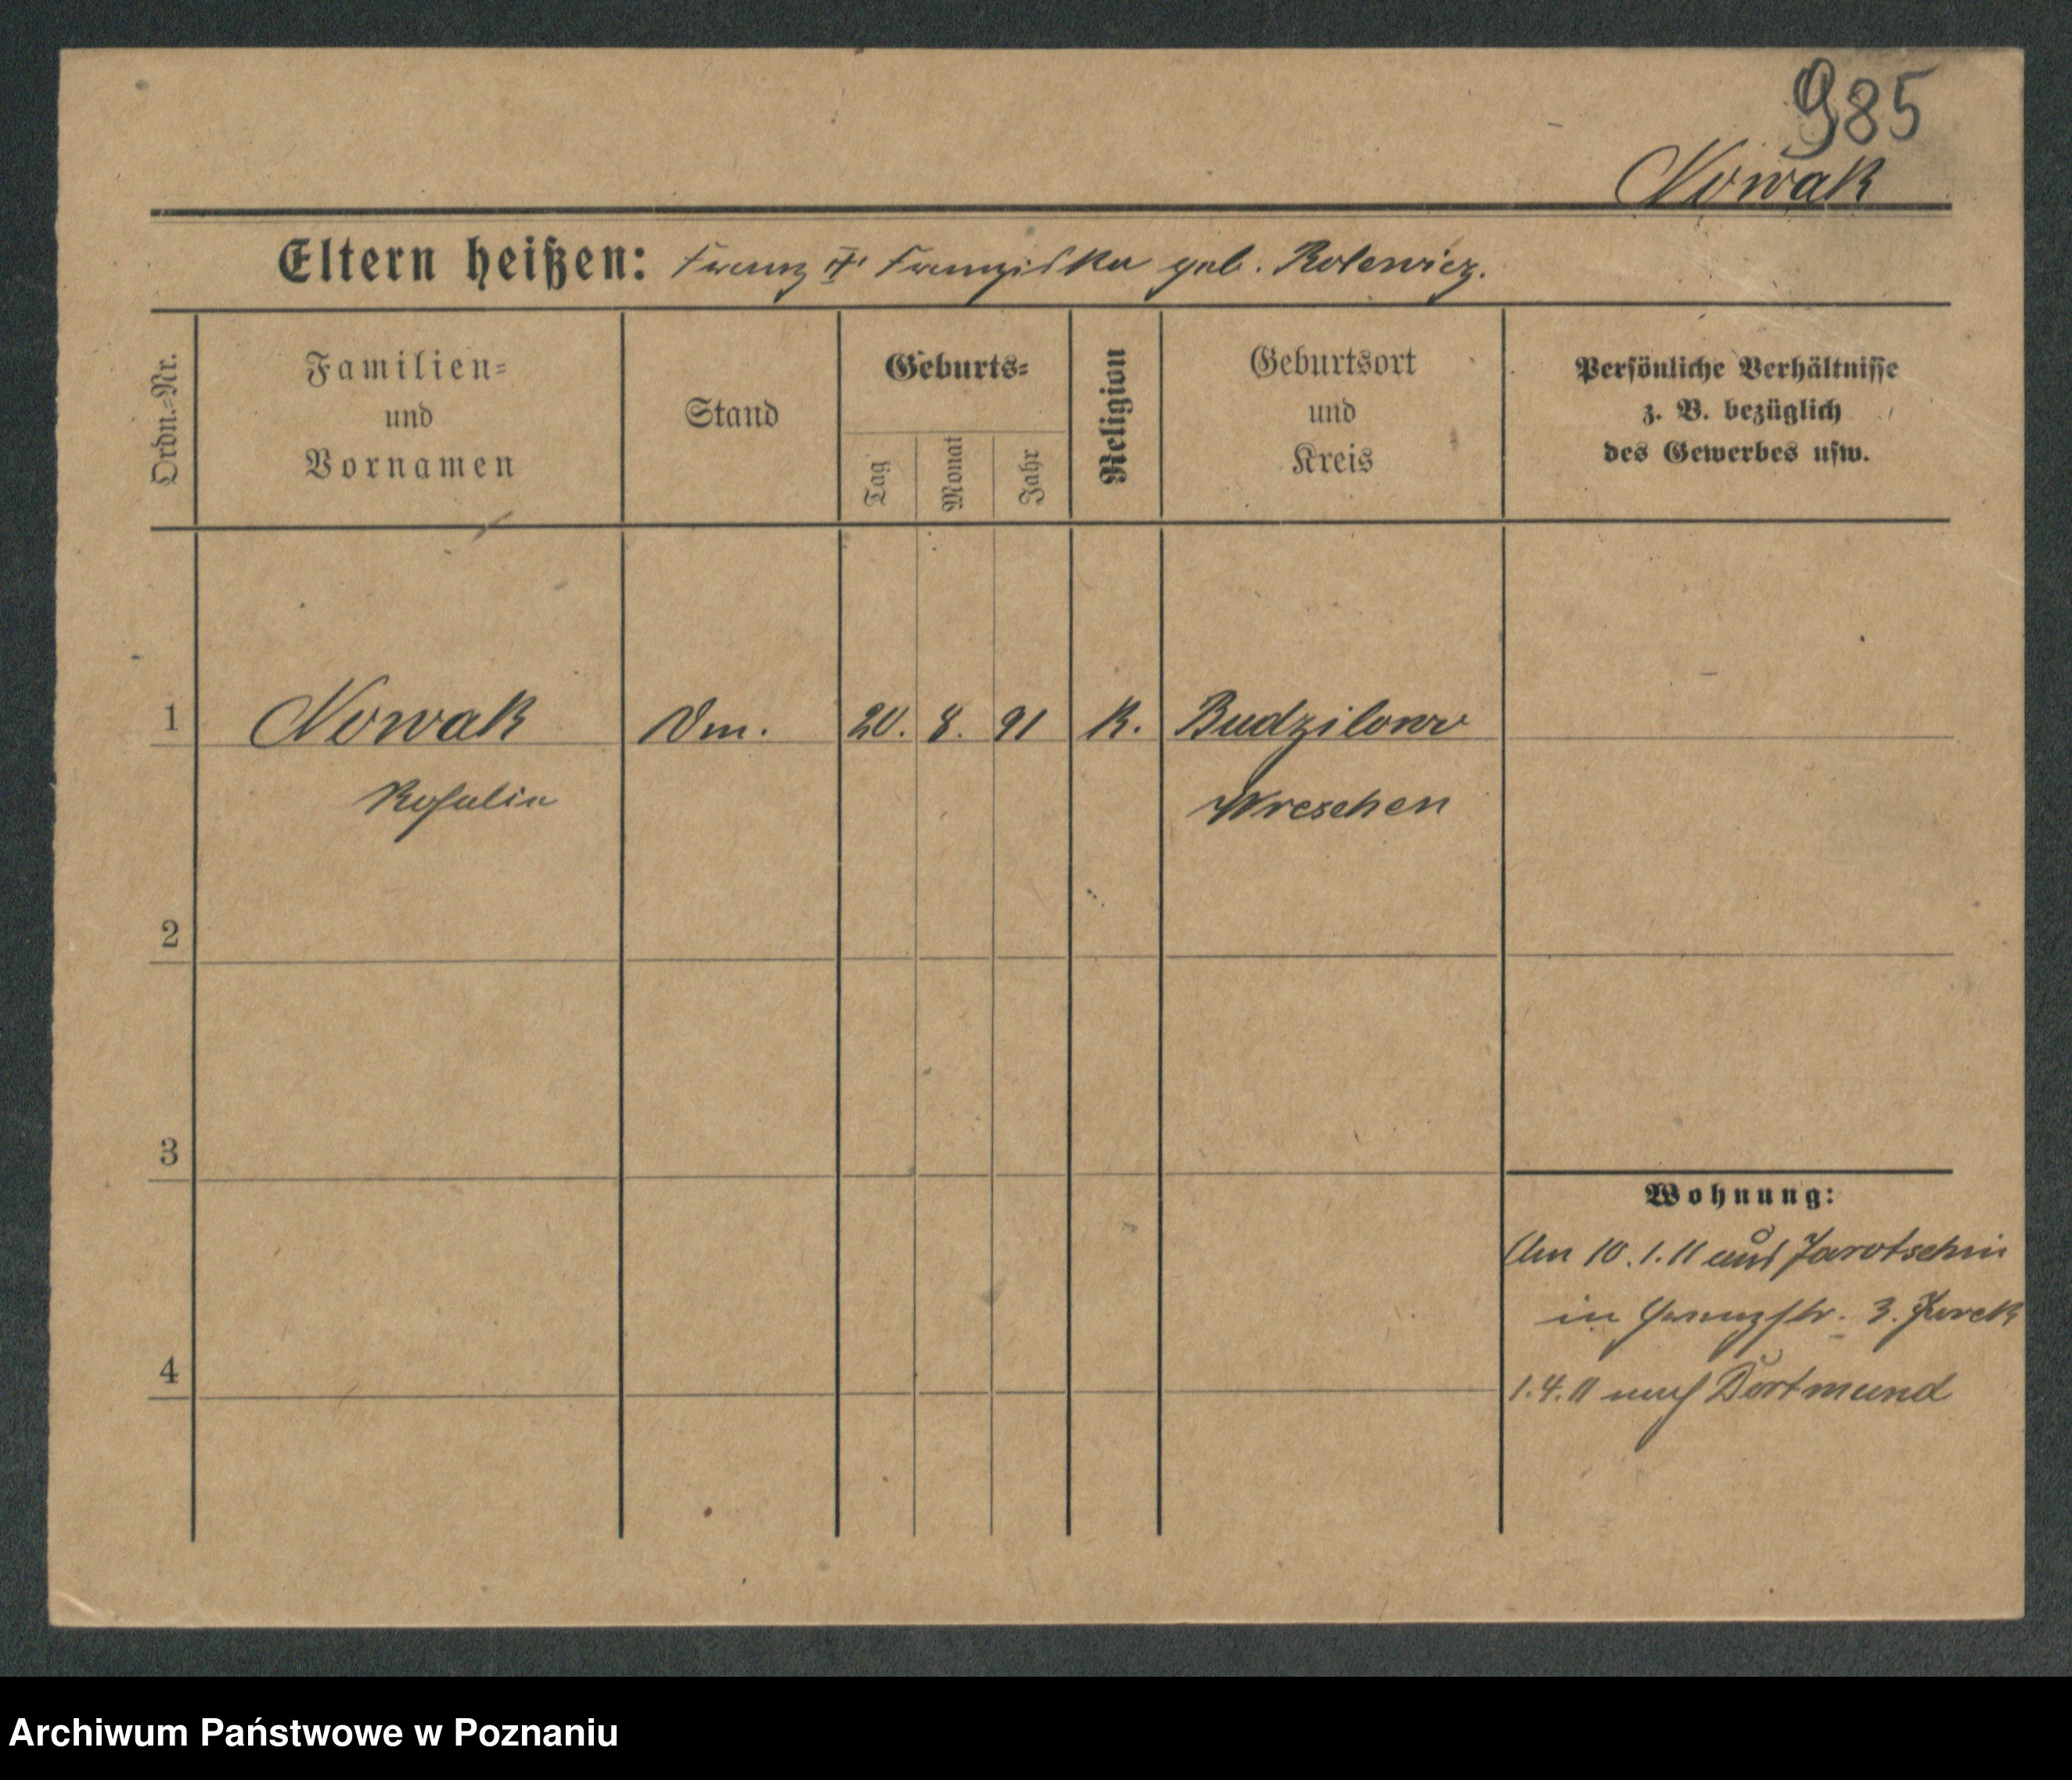 985
Nowak
Eltern heißen: Franz u. Franziska geb. Rolewicz.
Ordn.-Nr.
Familien- und Vornamen
Stand
Geburts-
Tag
Monat
Jahr
Religion
Geburtsort und Kreis
Persönliche Verhältnisse
z. B. bezüglich
des Gewerbes usw.
1 Nowak 20. 8. 91 K. Budzilowo
Rosalie Wreschen
2
3
4
Wohnung:
Am 10.1.11 aus Jarotschin
in 3.
1.4.11 nach Dortmund
Archiwum Państwowe w Poznaniu